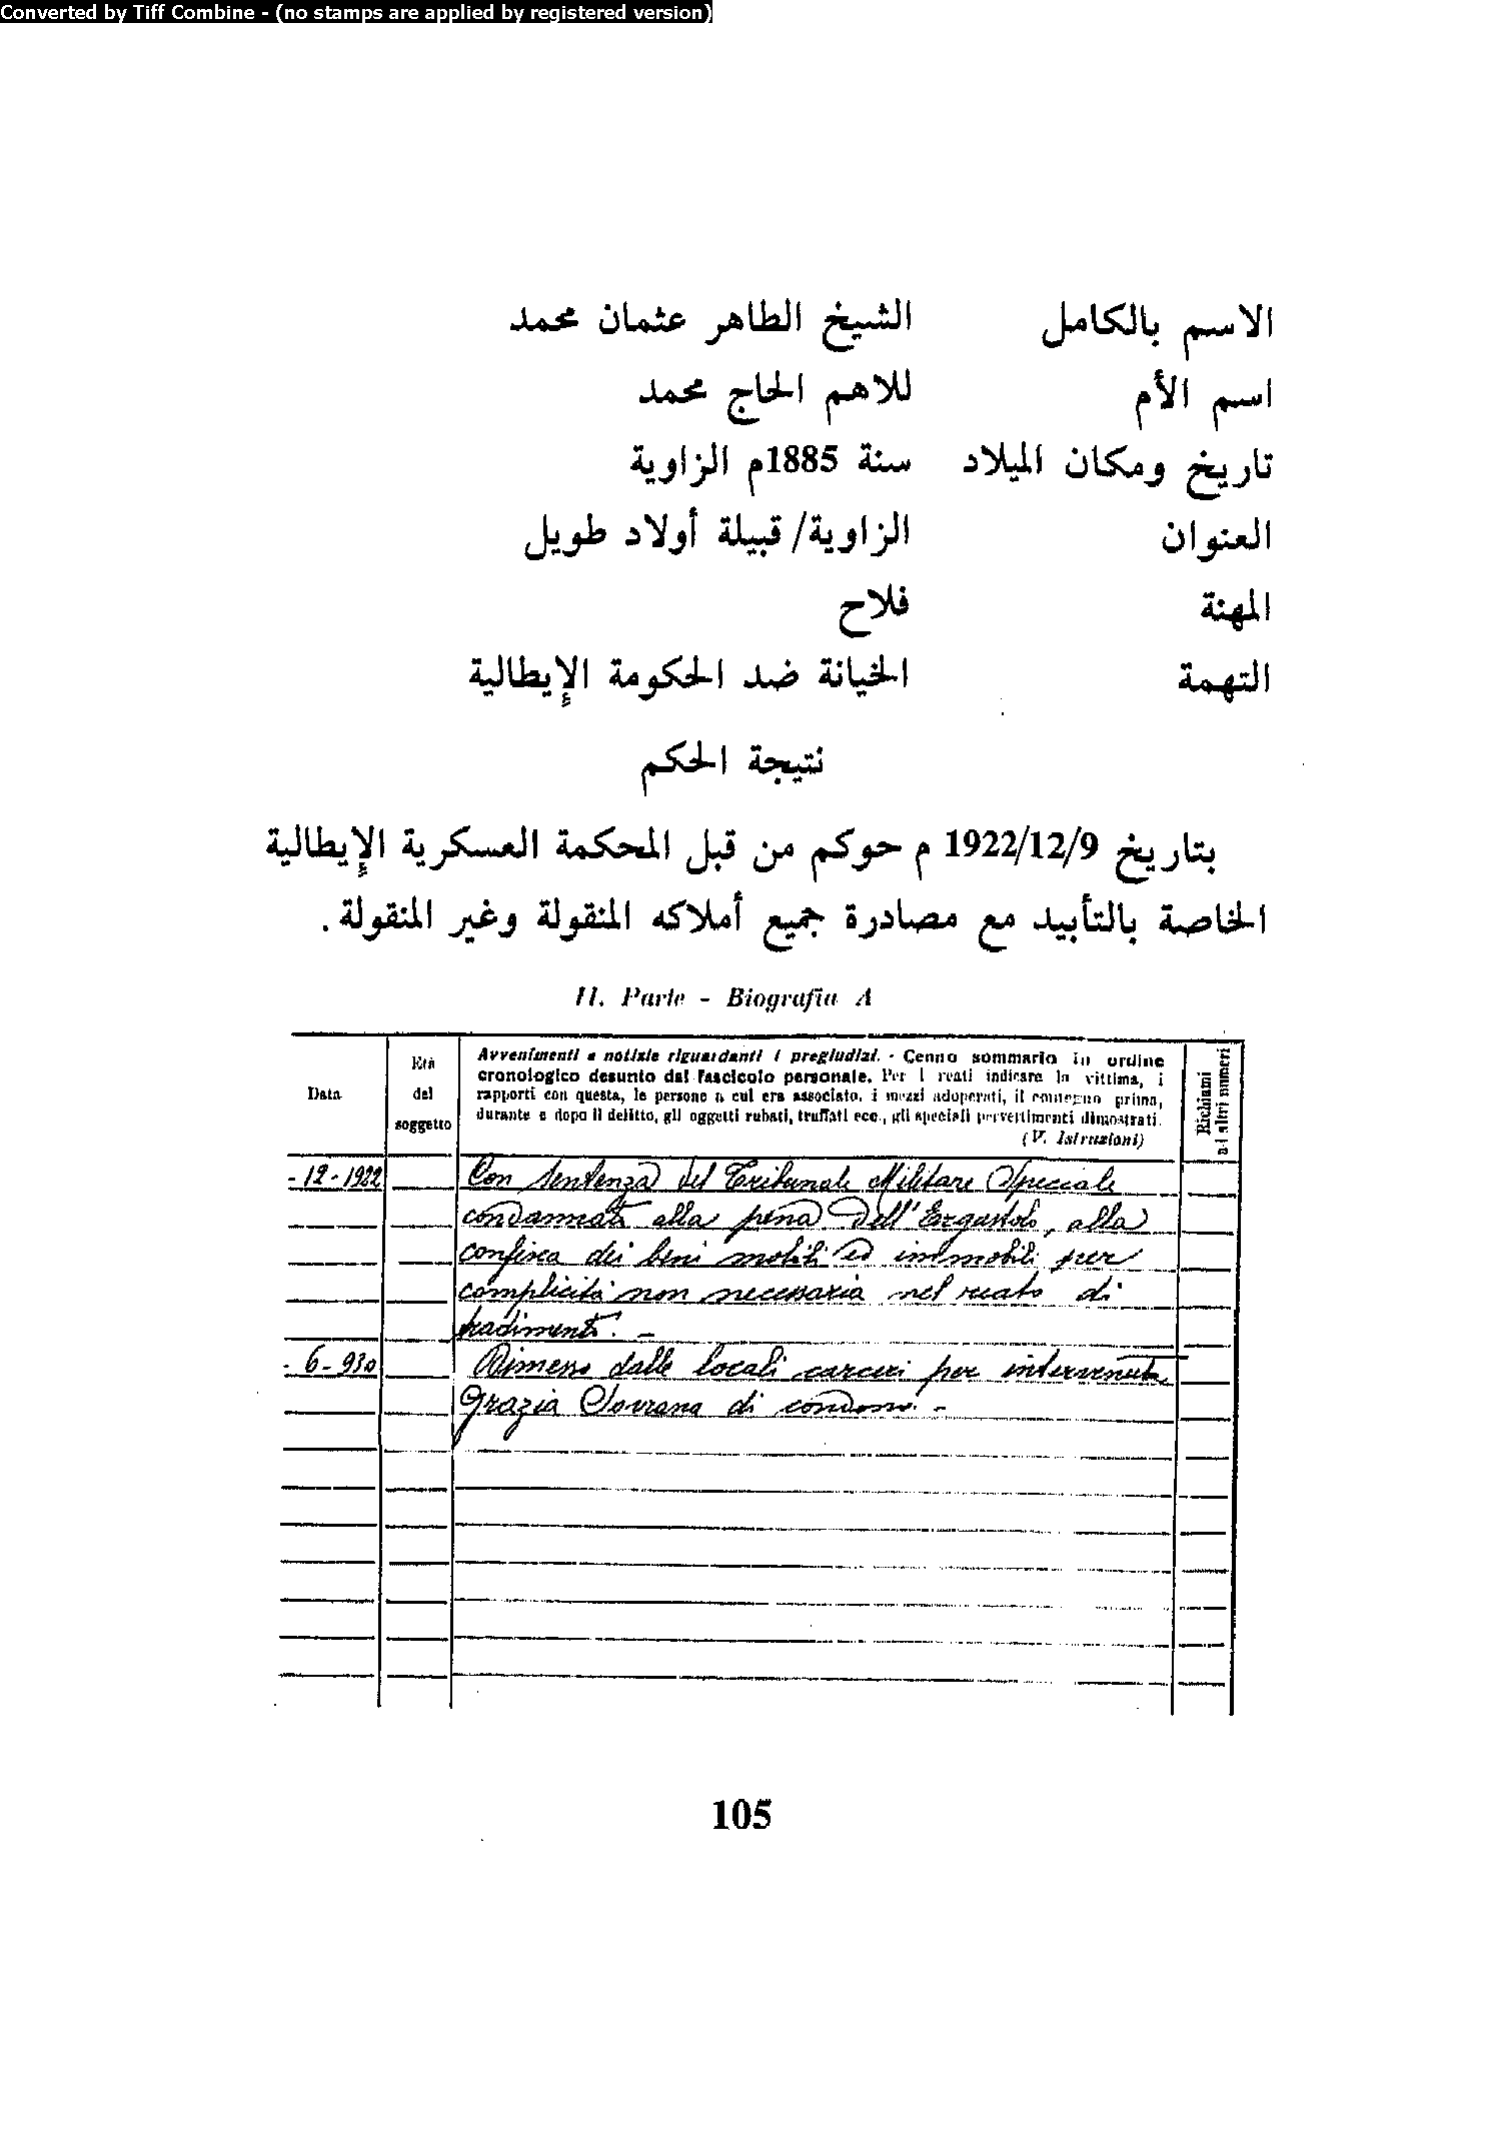 Converted by Tiff Combine - (no stamps are applied by registered version)
الاسم بالكامل الشيخ الطاهر عثمان محمد
اسم الأم للاهم الحاج محمد
تاريخ ومكان الميلاد سنة 1885م الزاوية
العنوان الزاوية/ قبيلة أولاد طويل
المهنة فلاح
التهمة الخيانة ضد الحكومة الإيطالية
نتيجة الحكم
بتاريخ 1922/12/9 م حوكم من قبل المحكمة العسكرية الإيطالية
الخاصة بالتأبيد مع مصادرة جميع أملاكه المنقولة وغير المنقولة.
II. Parte - Biografia A
Data
Età
del
soggetto
Avvenimenti e notizie riguardanti i pregiudizi. - Cenno sommario in ordine
cronologico desunto dal fascicolo personale. Per i reati indicare la vittima, i
rapporti con questa, le persone a cui era associato, i mezzi adoperati, il contegno prima,
durante e dopo il delitto, gli oggetti rubati, truffati ecc., gli speciali pervertimenti dimostrati.
(V. Istruzioni)
Richiami
ad altri numeri
- 12 - 1922 Con Sentenza del Tribunale Militare Speciale
condannato alla pena dell'Ergastolo, alla
confisca dei beni mobili ed immobili per
complicità non necessaria nel reato di
tradimento. -
- 6 - 930 Rimesso dalle locali carceri per intervenuta
Grazia Sovrana di condono. -
105